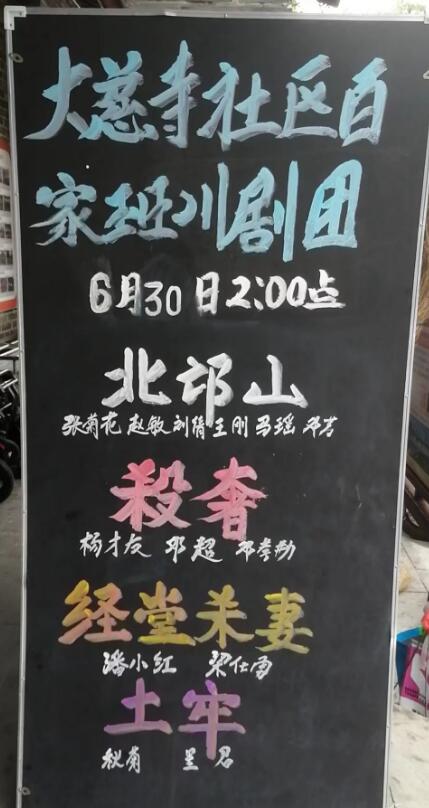 大慈寺社区百
家班川剧团
6月30日2:00点
北邙山
张菊花 赵敏 刘倩 王刚 马瑶 邓芳
殺奢
杨才友 邓超 邓孝勋
经堂杀妻
潘小红 梁仕雷
土牢
秋菊 兰君